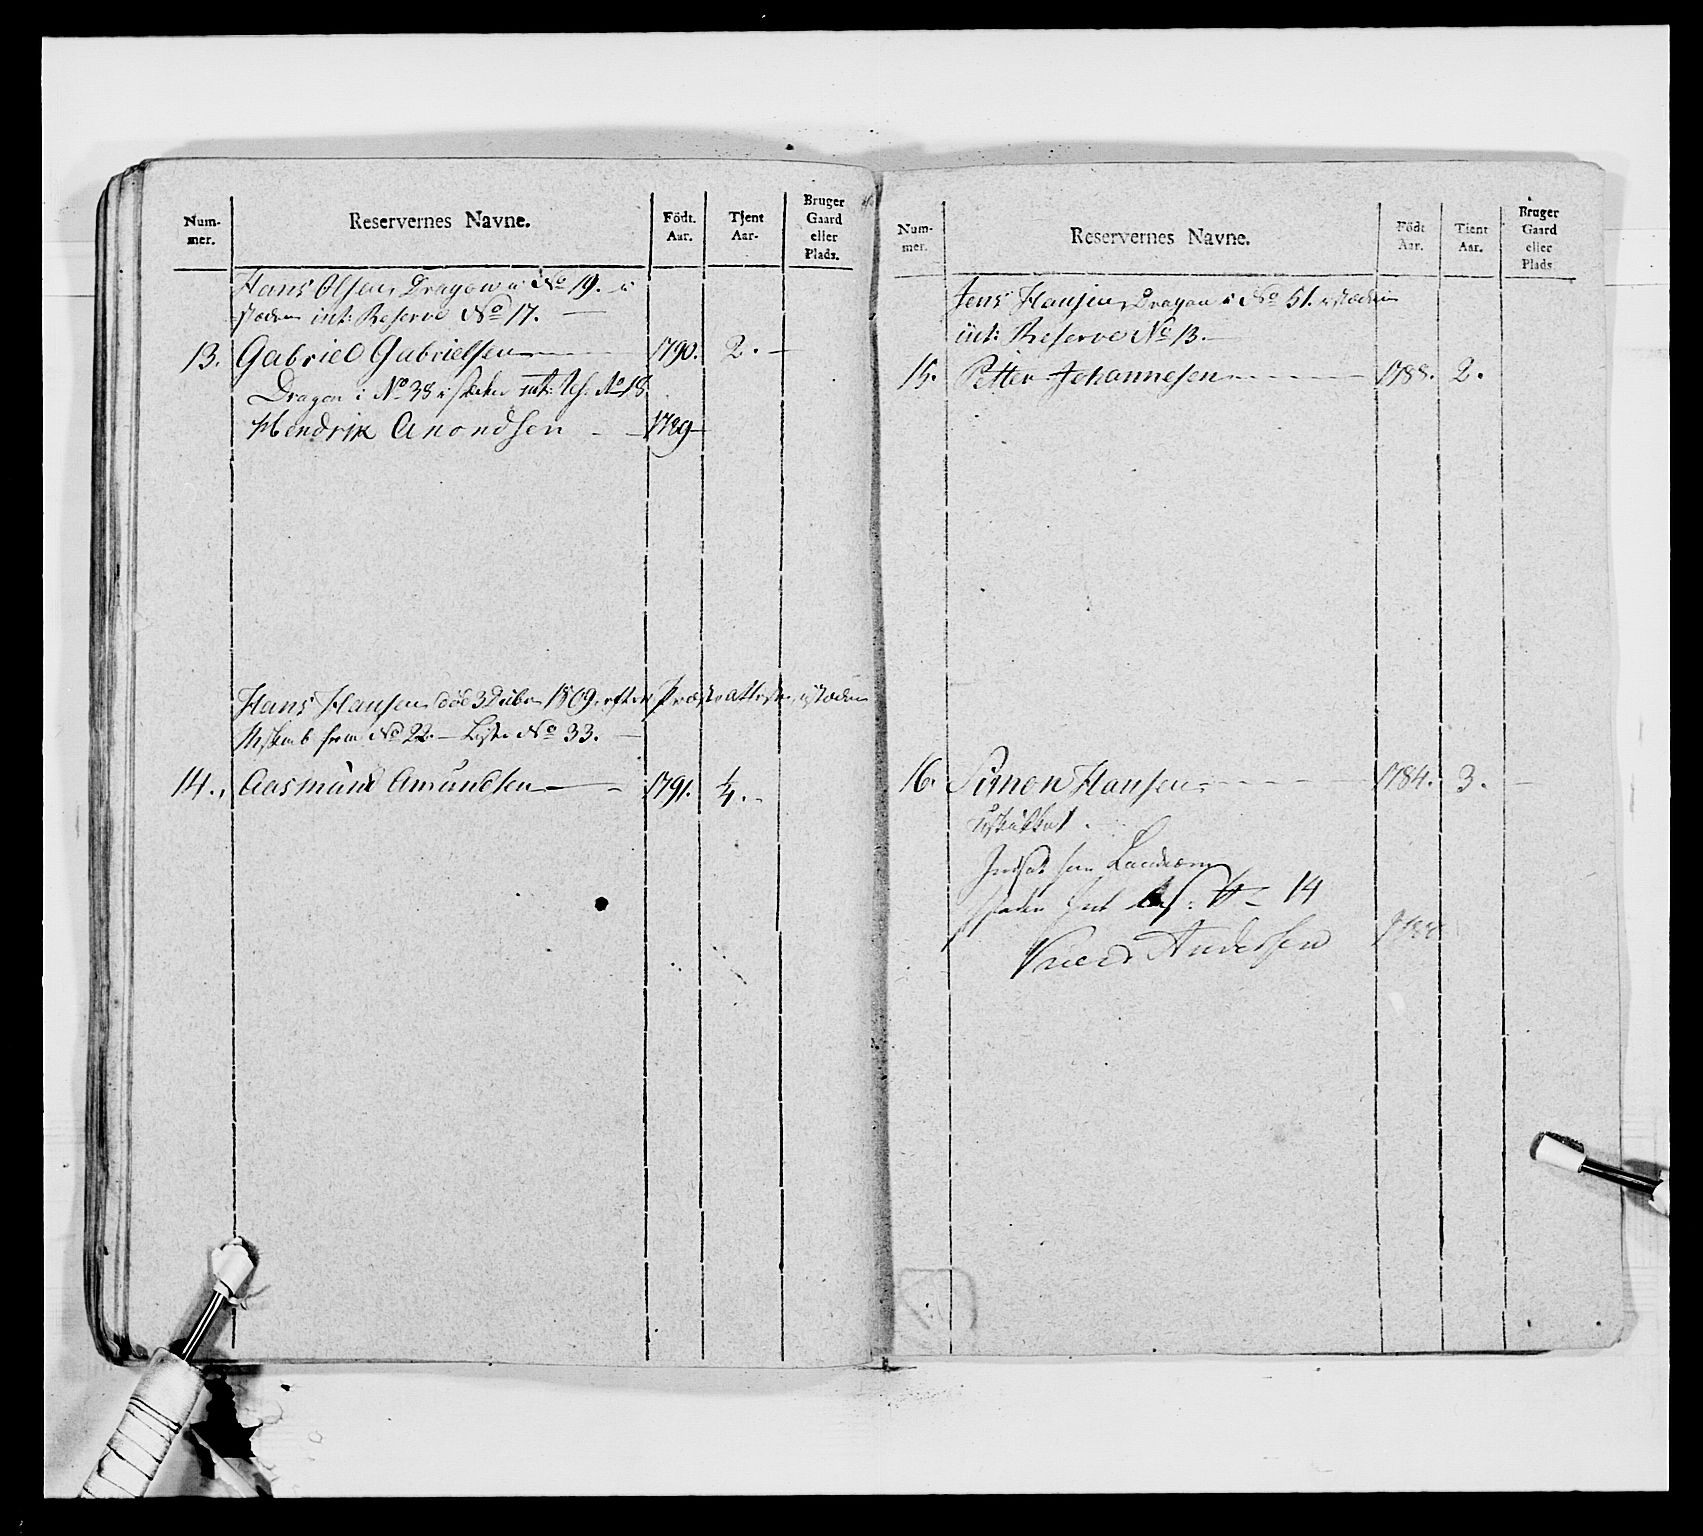 Num-
mer.
Reservernes Navne.
Födt.
Aar.
Tjent
Aar.
Bruger
Gaard
eller
Plads.
Hans Olsen, Dragon i No 19. i
stæden int: Reserve No 17.
13. Gabriel Gabrielsen 1790. 2.
Dragon i No 38 i stæden int: No 18
Hendrik Anondsen 1789
Hans Hansen død 3 1809, efter Præste attest, i stæden
from No 22. No 33.
14. Aasmund Amundsen 1791. 1/4.
Num-
mer.
Reservernes Navne.
Födt
Aar.
Tient
Aar.
Bruger
Gaard
eller
Plads.
Jens Hansen, Dragon i No 51. i stæden
int: Reserve No 13.
15. Petter Johannesen 1788. 2.
16. Simon Hansen 1784. 3.
Indsat som Landværn
14
Andersen